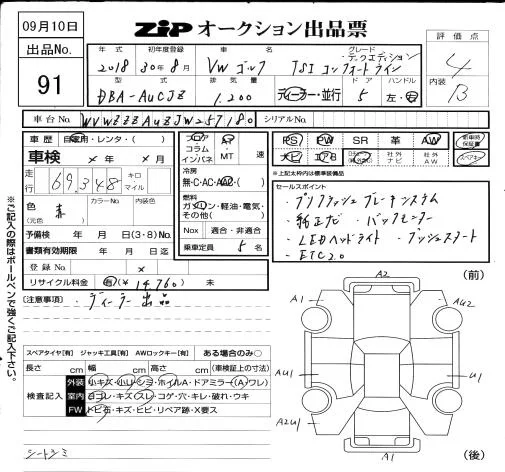 09月10日
ZIP オークション出品票
評価点
出品No.
91
年式 初年度登録 車名 グレード
テックエディション
2018 30年8月 VW ゴルフ TSI コンフォートライン
4
型式 排気量 ドア ハンドル
DBA-AUCJZ 1,200 ディーラー・並行 5 左・右
内装
B
車台No. WVWZZZAUZJW257180 シリアルNo.
車歴 自家用・レンタ・( )
フロア AT
コラム
インパネ MT 速
PS PW SR 革 AW
新車時保証書
車検 × 年 × 月
ナビ エアB 社外ナビ 社外AW
スペアキー
走行 69,348 キロ マイル
冷房
無・C・AC・AAC・( )
※上記太枠内は標準装備品
色 赤 カラーNo. 内装色
(元色 )
燃料
ガソリン・軽油・電気・
その他( )
セールスポイント
・プリクラッシュブレーキシステム
・純正ナビ ・バックモニター
・LEDヘッドライト ・プッシュスタート
・ETC2.0
予備検 年 月 日(3・8)No.
Nox 適合・非適合
書類有効期限 年 月 日
乗車定員 5 名
登録No. ×
リサイクル料金 有(¥ 14,760) 未
(注意事項) ・ディーラー出品
※ご記入の際はボールペンで強くご記入下さい。
スペアタイヤ[有] ジャッキ工具[有] AWロックキー[有] ある場合のみ○
長さ cm 幅 cm 高さ cm (車検証上の寸法)
検査記入
外装 小キズ・小U・シミ・ホイルA・ドアミラー(A・ワレ)
室内 ヨゴレ・キズ・スレ・コゲ・穴・キレ・破れ・ウキ
FW トビ石・キズ・ヒビ・リペア跡・X要ス
シートシミ
A2 (前)
A1 AU2
AU1 U1
A2U1
A1 (後)